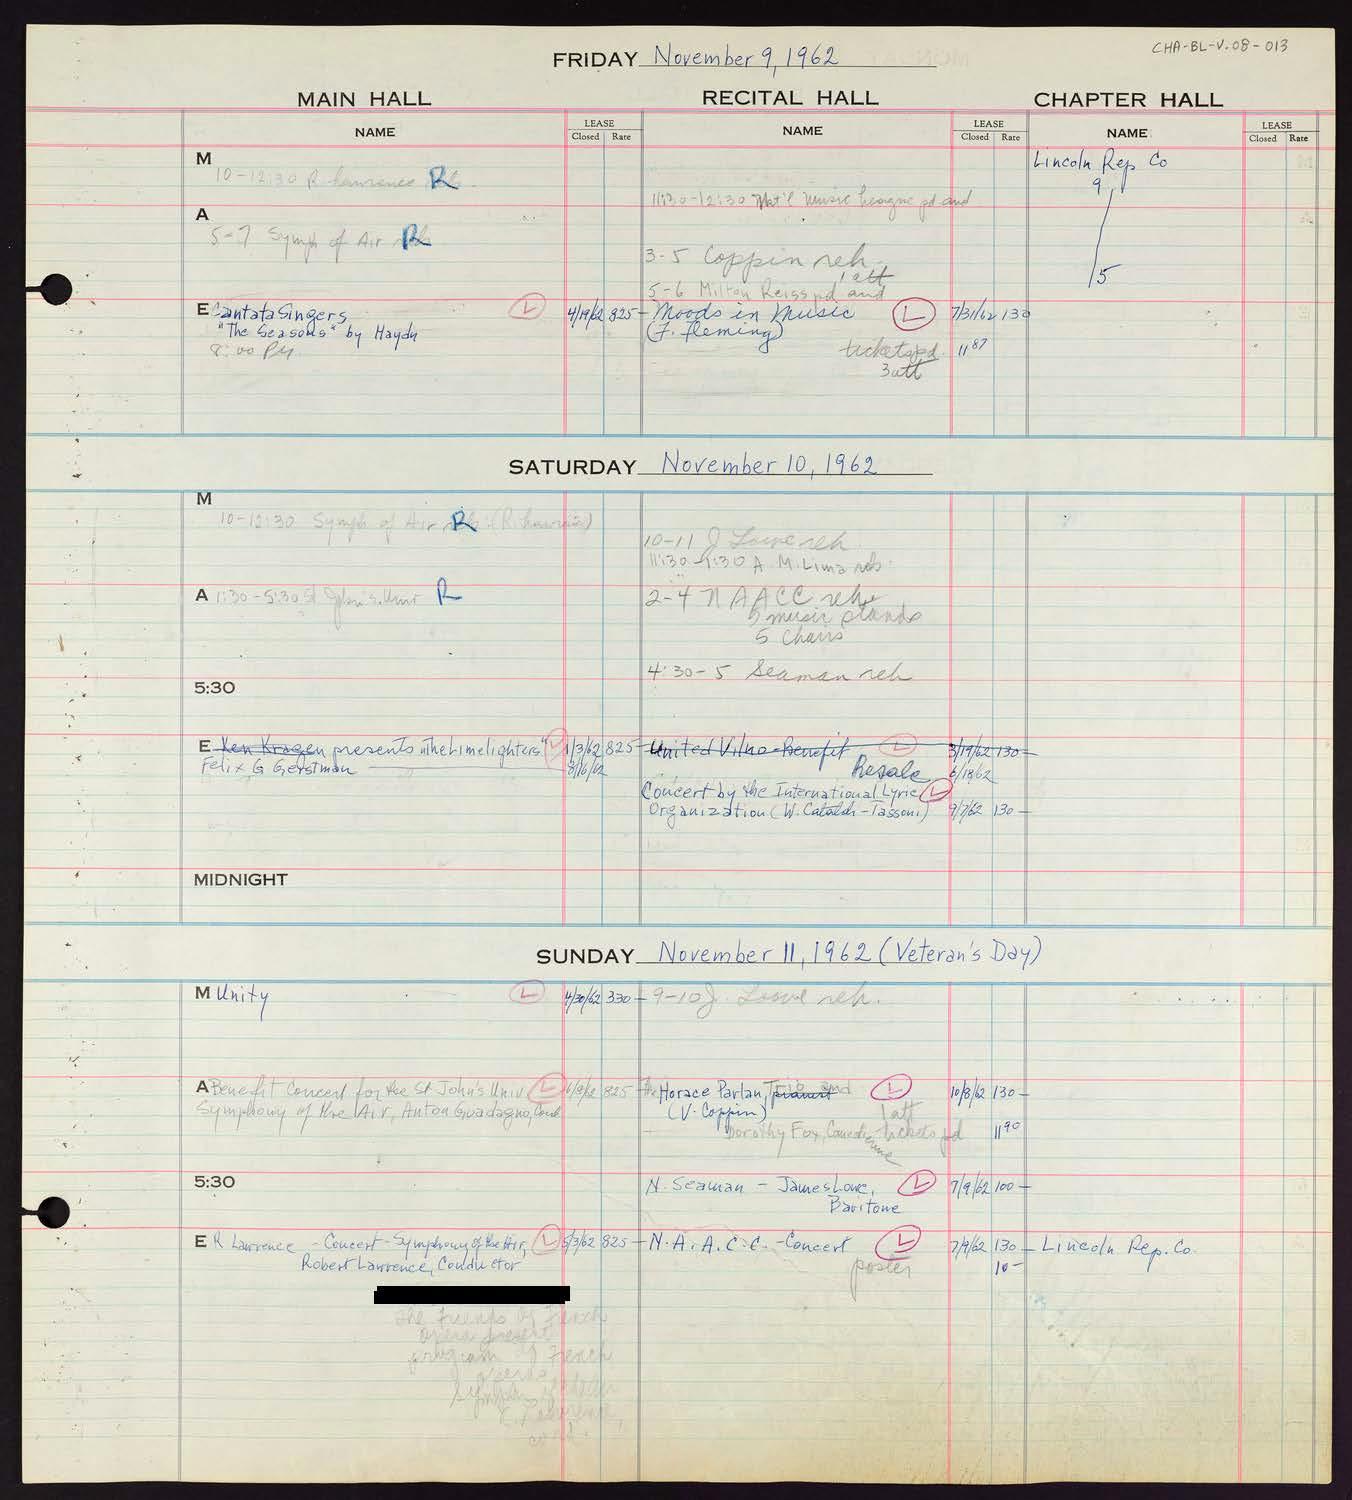 CHA-BL-V.08-013
FRIDAY November 9, 1962
MAIN HALL RECITAL HALL CHAPTER HALL
NAME LEASE Closed Rate NAME LEASE Closed Rate NAME LEASE Closed Rate
M
10-12:30 R. Lawrence R
Lincoln Rep Co
9
5
11:30-12:30 Nat'l Music League pd and
A
5-7 Symph of Air R
3-5 Coppin reh
1 att
5-6 Milton Reiss pd and
E Cantata Singers L 4/19/62 825-
"The Seasons" by Haydn
8:00 PM
Moods in Music L 7/31/62 130
(J. Fleming)
tickets pd. 11 87
3 att
SATURDAY November 10, 1962
M
10-12:30 Symph of Air R (R. Lawrence)
10-11 J Lowe reh
11:30-1:30 A. M. Lima reh
A 1:30-5:30 St John's Univ R
2-4 NAACC reh
5 music stands
5 chairs
4:30-5 Seaman reh
5:30
E Ken Kragen presents "The Limelighters" L 1/3/62 825-
Felix G Gerstman 8/16/62
United Vilno-Benefit L 3/19/62 130-
Resale 6/18/62
Concert by the International Lyric L
Organization (W. Cataldi-Tassoni) 9/7/62 130-
MIDNIGHT
SUNDAY November 11, 1962 (Veteran's Day)
M Unity L 4/30/62 330-
9-10 J. Lowe reh.
A Benefit Concert for the St John's Univ L 6/8/62 825-
Symphony of the Air, Anton Guadagno, Cond
The Horace Parlan, Trio and pianist L 10/8/62 130-
(V. Coppin)
1 att
Dorothy Fox, Comedienne tickets pd 11 90
5:30
N. Seaman - James Lowe, L 7/9/62 100-
Baritone
E R Lawrence - Concert - Symphony of the Air, L 5/3/62 825-
Robert Lawrence, Conductor
N.A.A.C.C. - Concert L 7/9/62 130-
poster 10-
Lincoln Rep. Co.
The Friends of French
Opera present
program of French
Symphony of the Air
R. Lawrence,
cond.